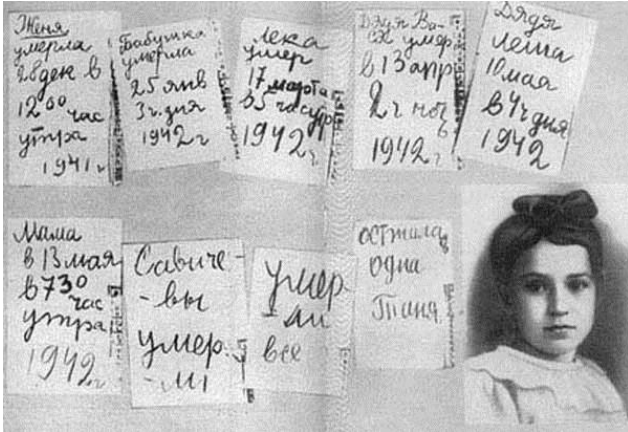 Женя
умерла
28 дек в
12 00 час
утра
1941 г
Бабушка
умерла
25 янв
3 ч. дня
1942 г
Лека
умер
17 марта
в 5 час утр
1942 г
Дядя Ва-
ся умер
в 13 апр
2 ч ноч
1942 г
Дядя
Леша
10 мая
в 4 ч дня
1942
Мама
в 13 мая
в 7 30
час
утра
1942 г
Савиче
-вы
умер
-ли
умер
ли
все
осталась
одна
Таня